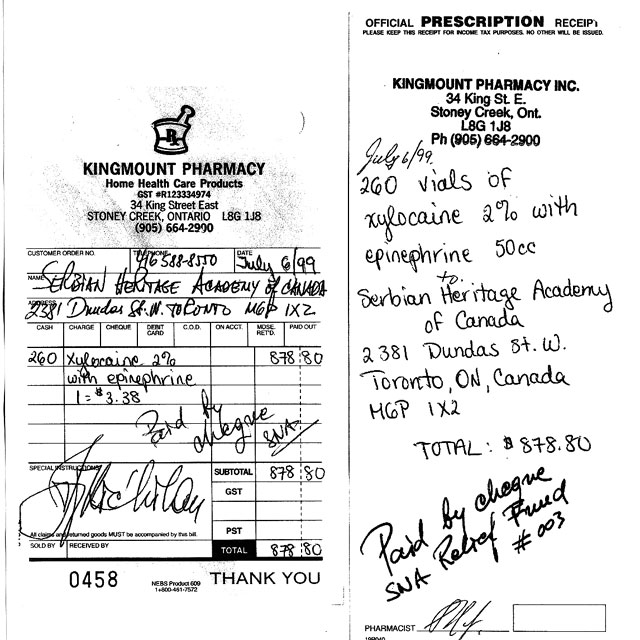 Rx
KINGMOUNT PHARMACY
Home Health Care Products
GST #R123334974
34 King Street East
STONEY CREEK, ONTARIO L8G 1J8
(905) 664-2900
CUSTOMER ORDER NO. TELEPHONE 416 588-8550 DATE July 6/99
NAME SERBIAN HERITAGE ACADEMY of CANADA
ADDRESS 2381 Dundas St. W. TORONTO M6P 1X2
CASH CHARGE CHEQUE DEBIT CARD C.O.D. ON ACCT. MDSE. RET'D. PAID OUT
260 Xylocaine 2% 878 80
with epinephrine
1 = $3.38
Paid by
cheque
SNA
SPECIAL INSTRUCTIONS
SUBTOTAL 878 80
GST
PST
All claims and returned goods MUST be accompanied by this bill.
SOLD BY RECEIVED BY TOTAL 878 80
0458 NEBS Product 609 THANK YOU
1+800-461-7572
OFFICIAL PRESCRIPTION RECEIPT
PLEASE KEEP THIS RECEIPT FOR INCOME TAX PURPOSES. NO OTHER WILL BE ISSUED.
KINGMOUNT PHARMACY INC.
34 King St. E.
Stoney Creek, Ont.
L8G 1J8
Ph (905) 664-2900
July 6/99.
260 vials of
xylocaine 2% with
epinephrine 50cc
to:
Serbian Heritage Academy
of Canada
2381 Dundas St. W.
Toronto, ON, Canada
M6P 1X2
TOTAL: $878.80
Paid by cheque
SNA Relief Fund
# 003
PHARMACIST